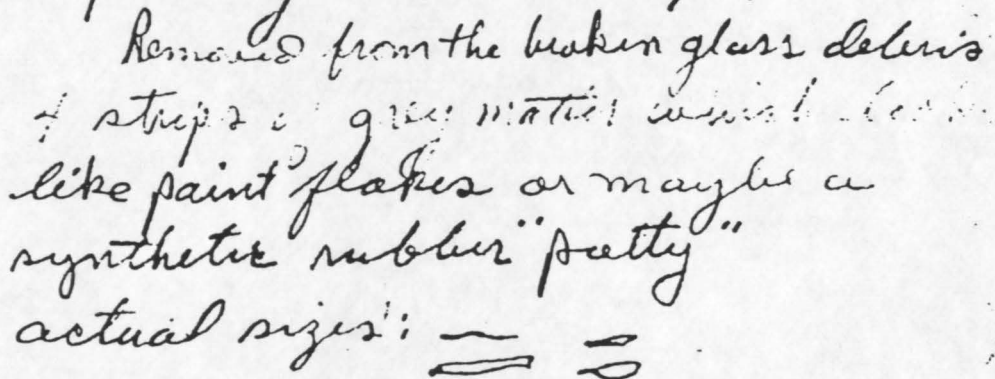 Removed from the broken glass debris
4 strips of grey matter which looks
like paint flakes or maybe a
synthetic rubber "putty"
actual sizes: